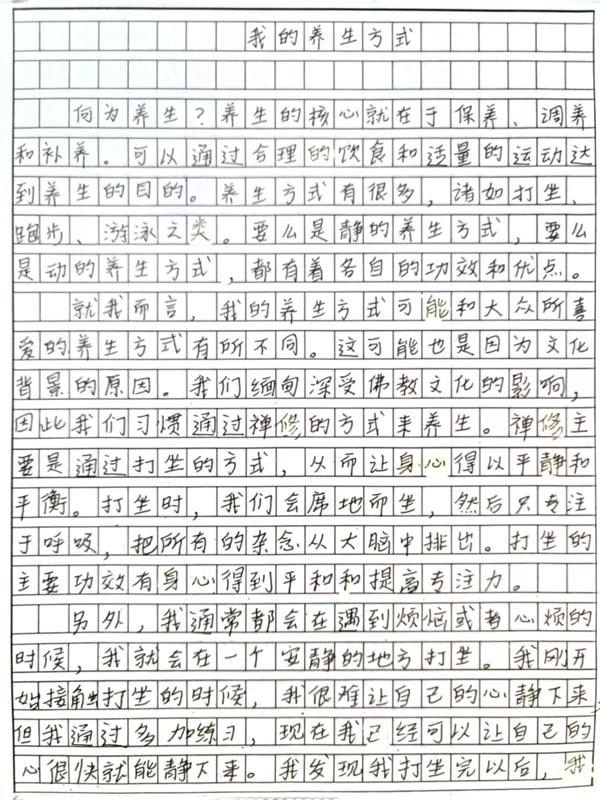 我的养生方式
何为养生?养生的核心就在于保养、调养
和补养。可以通过合理的饮食和适量的运动达
到养生的目的。养生方式有很多,诸如打坐、
跑步、游泳之类。要么是静的养生方式,要么
是动的养生方式,都有着各自的功效和优点。
就我而言,我的养生方式可能和大众所喜
爱的养生方式有所不同。这可能也是因为文化
背景的原因。我们缅甸深受佛教文化的影响,
因此我们习惯通过禅修的方式来养生。禅修主
要是通过打坐的方式,从而让身心得以平静和
平衡。打坐时,我们会席地而坐,然后只专注
于呼吸,把所有的杂念从大脑中排出。打坐的
主要功效有身心得到平和和提高专注力。
另外,我通常都会在遇到烦恼或者心烦的
时候,我就会在一个安静的地方打坐。我刚开
始接触打坐的时候,我很难让自己的心静下来,
但我通过多加练习,现在我已经可以让自己的
心很快就能静下来。我发现我打坐完以后,我